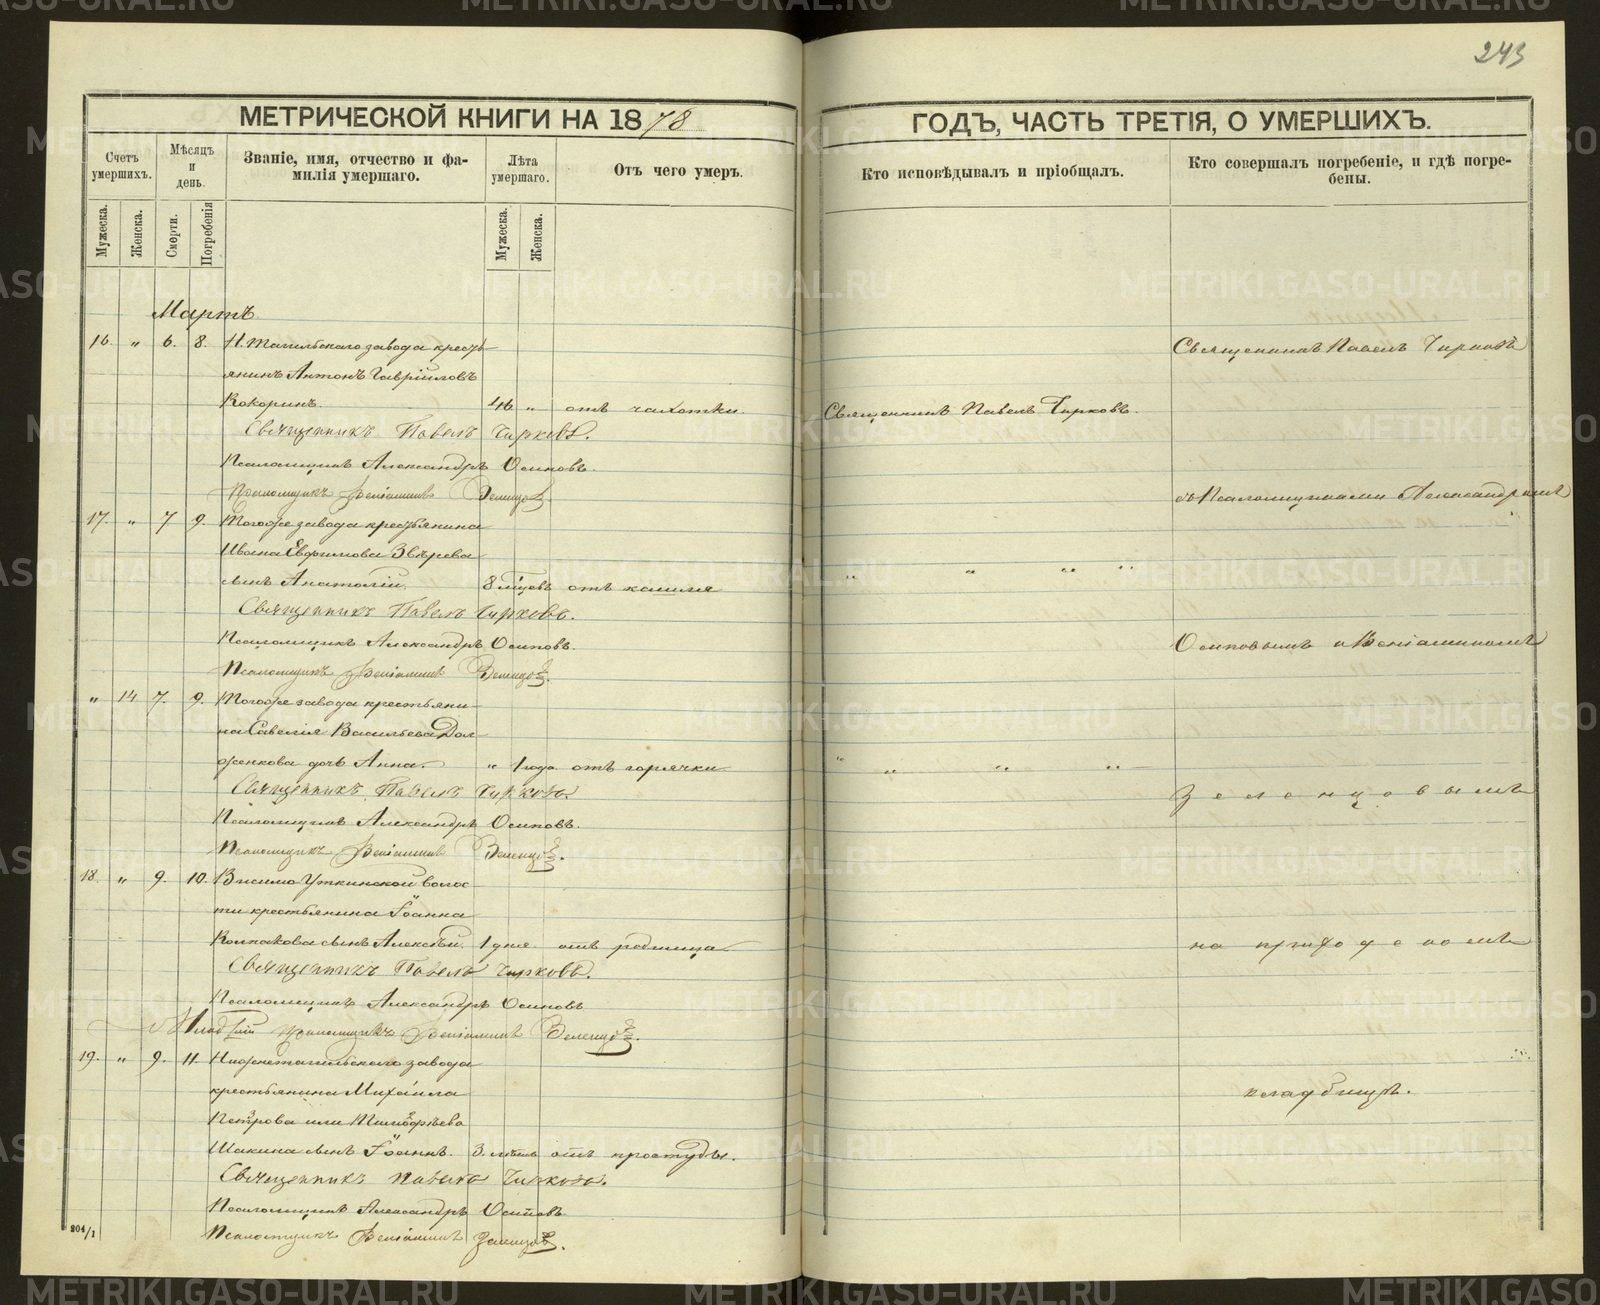 243
МЕТРИЧЕСКОЙ КНИГИ НА 1878
ГОДЪ, ЧАСТЬ ТРЕТІЯ, О УМЕРШИХЪ.
Счетъ умершихъ.
Мѣсяцъ и день.
Званіе, имя, отчество и фамилія умершаго.
Лѣта умершаго.
Отъ чего умеръ.
Кто исповѣдывалъ и пріобщалъ.
Кто совершалъ погребеніе, и гдѣ погребены.
Мужеска.
Женска.
Смерти.
Погребенія
Мужеска.
Женска.
Мартъ.
16. „ 6. 8. Н. Тагильскаго завода кресть-
янинъ Антонъ Гавріиловъ
Кокоринъ. 46 „ отъ чахотки.
Священникъ Павелъ Чирковъ.
Псаломщикъ Александръ Осиповъ.
Псаломщикъ Веніаминъ Зеленцов
17. „ 7 9. Тогоже завода крестьянина
Ивана Евфимова Звѣрева
сынъ Анатолій. 8 мѣсцевъ отъ кашля
Священникъ Павелъ Чирковъ.
Псаломщикъ Александръ Осиповъ.
Псаломщикъ Веніаминъ Зеленцов.
„ 14 7. 9. Тогоже завода крестьяни-
на Савелія Васильева Дол-
женкова дочь Анна. „ 1 года. отъ горячки
Священникъ Павелъ Чирковъ
Псаломщикъ Александръ Осиповъ.
Псаломщикъ Веніаминъ Зеленцов.
18. „ 9. 10. Висимо Уткинской волос
ти крестьянина Іоанна
Колпакова сынъ Алексѣй. 1 дня. отъ родимца
Священникъ Павелъ Чирковъ.
Псаломщикъ Александръ Осиповъ
Младшій псаломщикъ Веніаминъ Зеленцов.
19. „ 9. 11. Нижнетагильскаго завода
крестьянина Михаила
Петрова или Тимофѣева
Шакина сынъ Іоаннъ. 3. лѣтъ отъ простуды.
Священникъ Павелъ Чирковъ.
Псаломщикъ Александръ Осиповъ
Псаломщикъ Веніаминъ Зеленцов.
204/1
Священникъ Павелъ Чирковъ.
„ „ „ „
„ „ „ „
Священникъ Павелъ Чирковъ
съ Псаломщиками Александромъ
Осиповымъ и Веніаминомъ
Зеленцовымъ
на приходскомъ
кладбищѣ.
METRIKI.GASO-URAL.RU